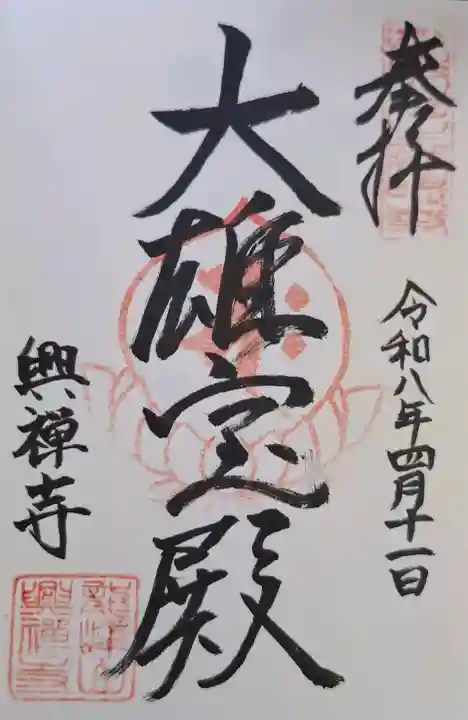 奉拝
令和八年四月十一日
大雄宝殿
興禅寺